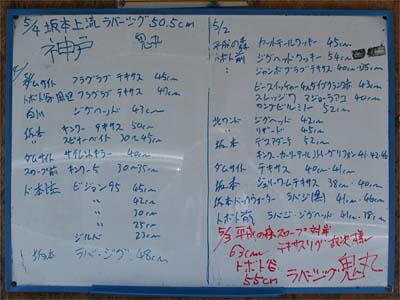 5/4 坂本上流 ラバージグ 50.5cm
神戸 鬼丸
ダムサイト フラグラブ テキサス 45cm
トボト谷周辺 フラグラブ テキサス 47cm
白川 ジグヘッド 43cm
坂本 キンクー テキサス 50cm
〃 スピナーベイト 30〜45cm
ダムサイト サイレントキラー 40cm
スロープ前 キンクー5 30〜35cm
ド本流 ビジョン95 45cm
〃 42cm
〃 30cm
〃 25cm
ジルド 23cm
ラバージグ 48cm
5/2
平成の森 カットテールワッキー 45cm
トボト前 ジグヘッドワッキー 54cm
〃 ジャンボグラブテキサス 40cm
ビースイッチャー 4x ダイブクランク 43cm
スレッジ マジョーラアユ 40cm
ロングビルミノー 52cm
北ワンド ジグヘッド 42cm
〃 リザード 45cm
坂本 デスアダー5 52cm
キンクー カーリーテール 41・42・46
ダムサイト テキサス 40cm
坂本 ジェリーワームテキサス 38cm 40cm
坂本バックウォーター ラバジ 41cm
トボト前 ラバジ・ジグヘッド 41cm・38cm
5/3 平成の森スロープ対岸
63cm テキサスリグ
トボト谷
55cm ラバージグ 鬼丸